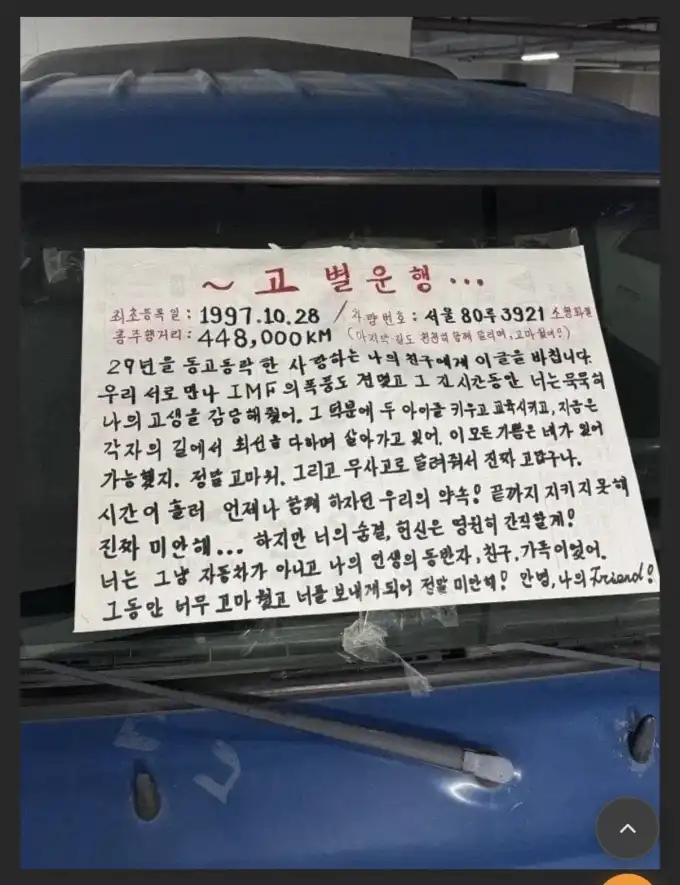 ~ 고별운행...
최초등록일 : 1997.10.28 / 차량번호 : 서울80루3921 소형화물
총주행거리 : 448,000KM (마지막 길도 천천히 함께 달리며, 고마웠어!)
29년을 동고동락한 사랑하는 나의 친구에게 이 글을 바칩니다.
우리 서로 만나 IMF의 폭풍도 견뎠고 그 긴 시간동안 너는 묵묵히
나의 고생을 감당해줬어. 그 덕분에 두 아이를 키우고 교육시키고, 지금은
각자의 길에서 최선을 다하며 살아가고 있어. 이 모든 기쁨은 네가 있어
가능했지. 정말 고마워. 그리고 무사고로 달려줘서 진짜 고맙구나.
시간이 흘러 언제나 함께 하자던 우리의 약속! 끝까지 지키지 못해
진짜 미안해... 하지만 너의 숨결, 헌신은 영원히 간직할게!
너는 그냥 자동차가 아니고 나의 인생의 동반자, 친구, 가족이었어.
그동안 너무 고마웠고 너를 보내게 되어 정말 미안해! 안녕, 나의 Friend!